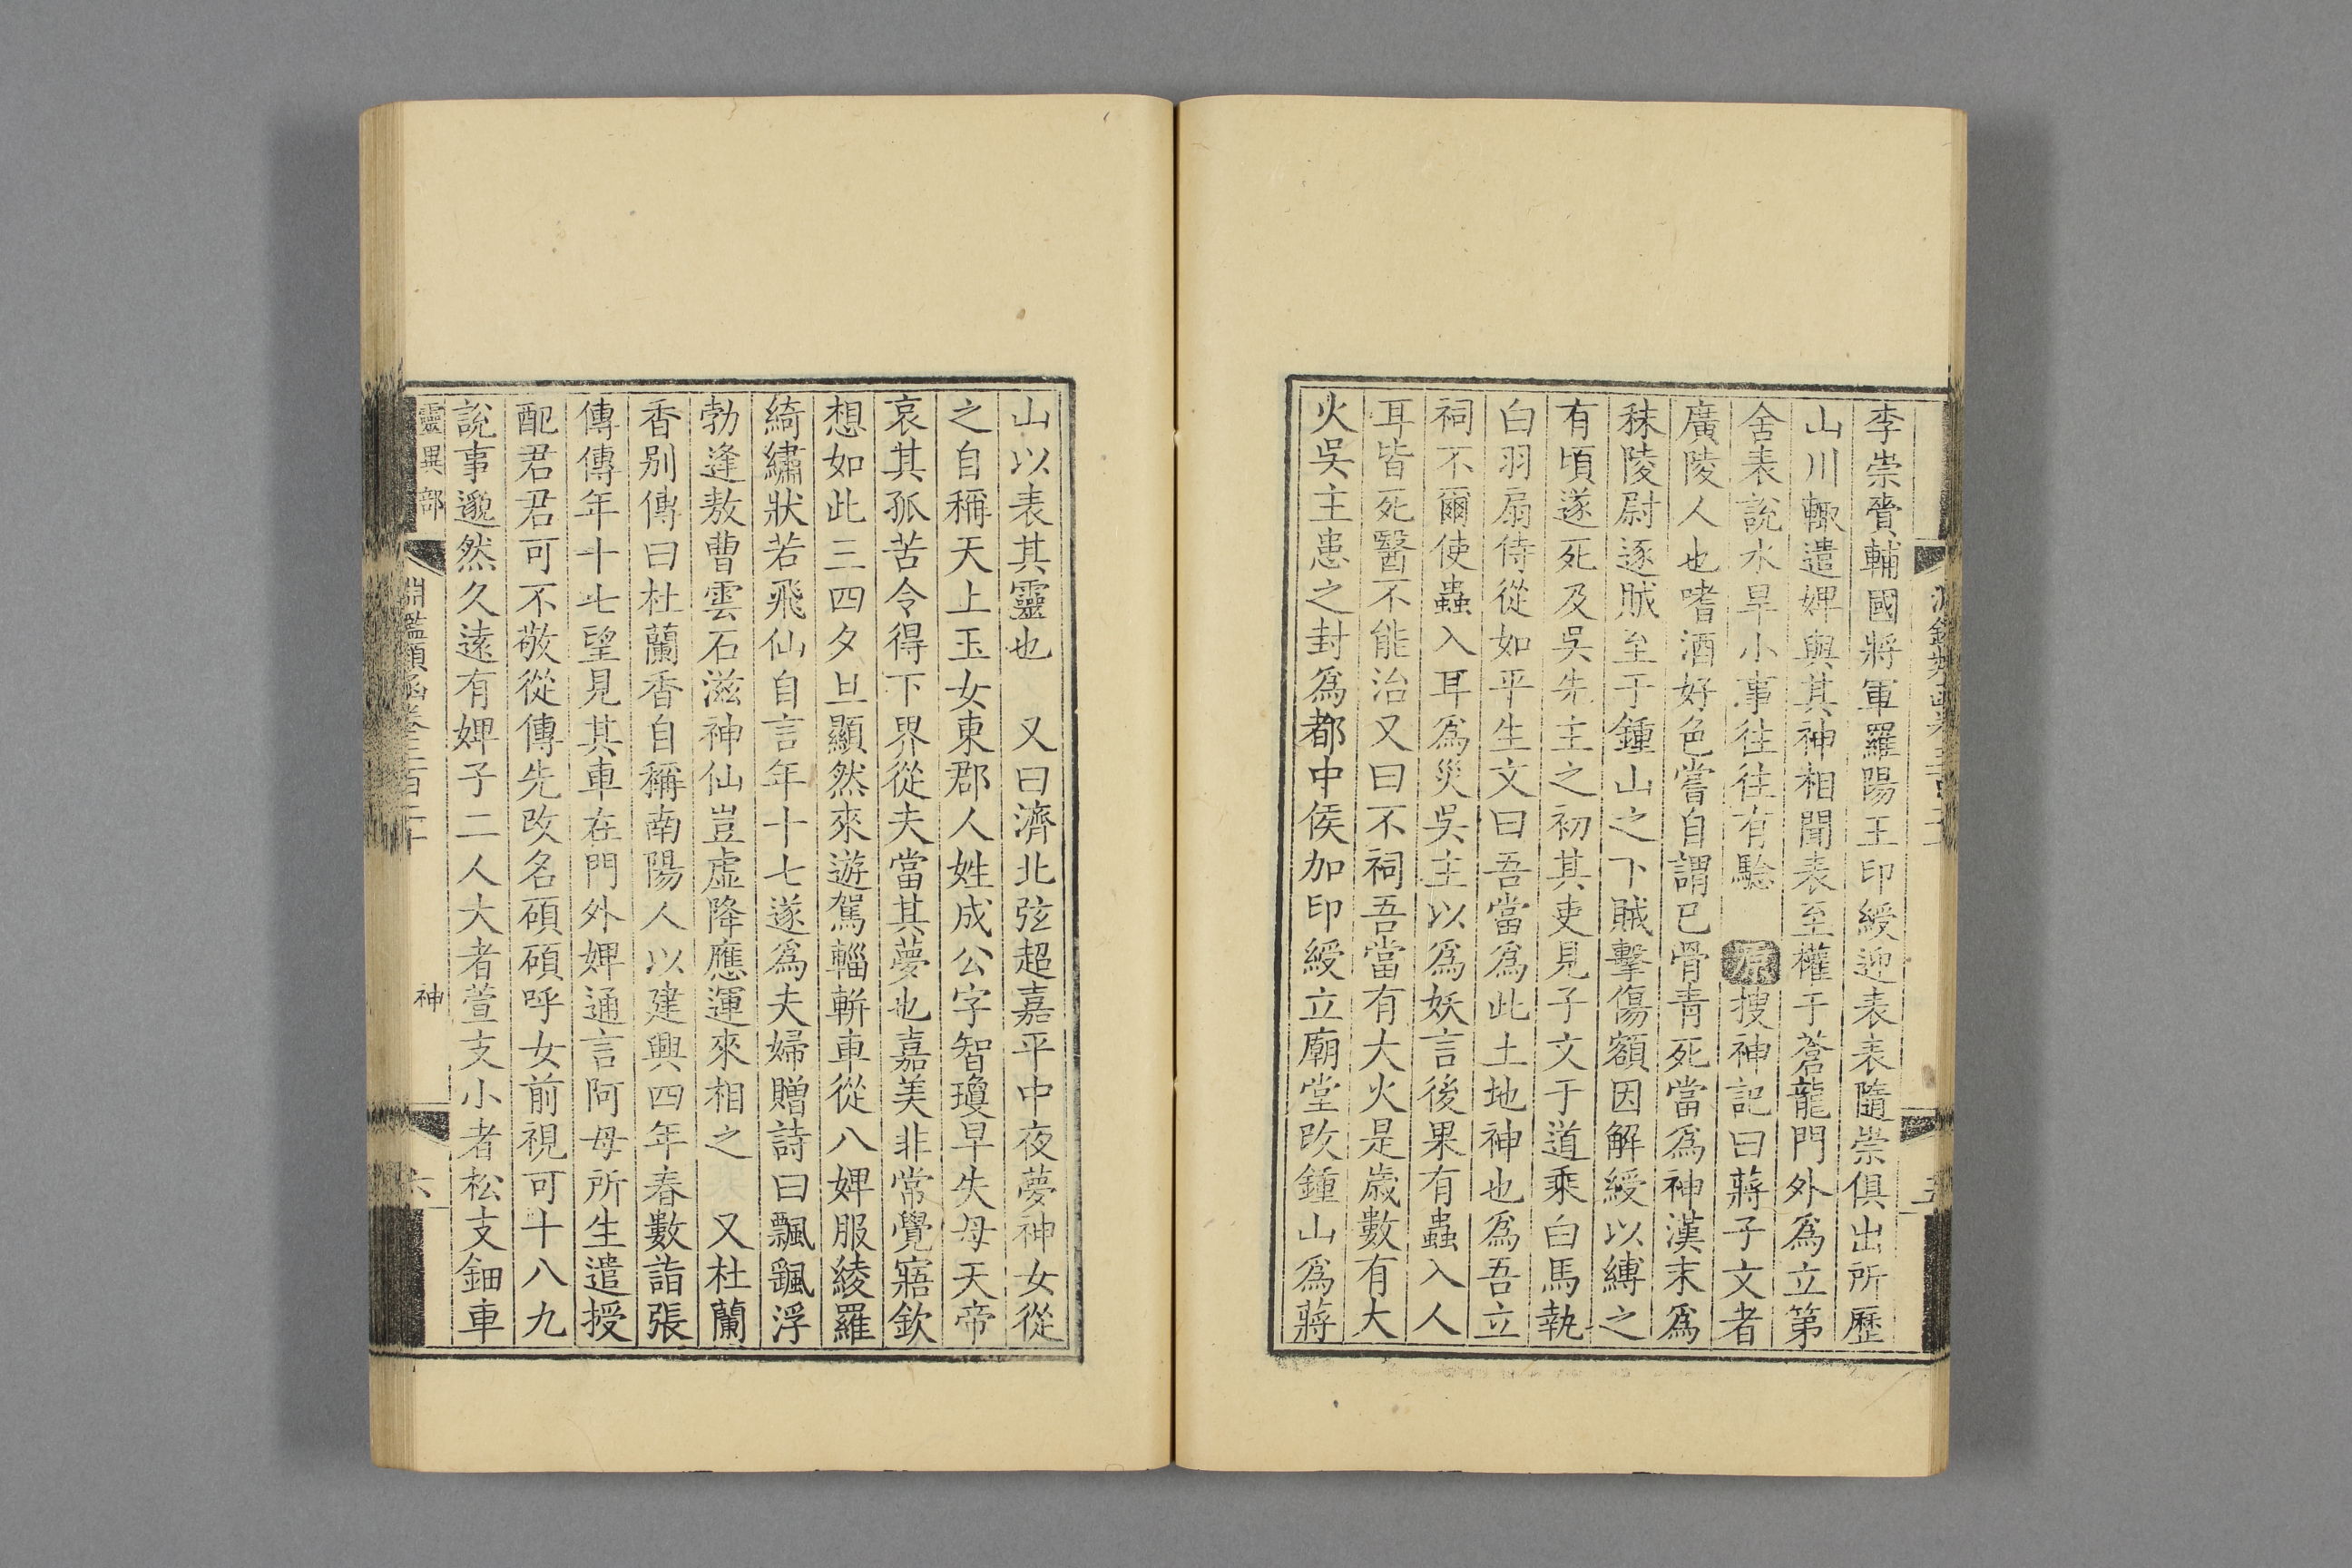 李崇賫輔國將軍羅陽王印綬迎表表隨崇俱出所歷
山川輙遣婢與其神相聞表至權于蒼龍門外爲立第
舍表說水旱小事往往有驗 原搜神記曰蔣子文者
廣陵人也嗜酒好色嘗自謂已骨青死當爲神漢末爲
秣陵尉逐賊至于鍾山之下賊擊傷額因解綬以縛之
有頃遂死及吳先主之初其吏見子文于道乘白馬執
白羽扇侍從如平生文曰吾當爲此土地神也爲吾立
祠不爾使蟲入耳爲災吳主以爲妖言後果有蟲入人
耳皆死醫不能治又曰不祠吾當有大火是歲數有大
火吳主患之封爲都中侯加印綬立廟堂改鍾山爲蔣
山以表其靈也 又曰濟北弦超嘉平中夜夢神女從
之自稱天上玉女東郡人姓成公字智瓊早失母天帝
哀其孤苦令得下界從夫當其夢也嘉美非常覺寤欽
想如此三四夕旦顯然來遊駕輜軿車從八婢服綾羅
綺繡狀若飛仙自言年十七遂爲夫婦贈詩曰飄颻浮
勃逢敖曹雲石滋神仙豈虛降應運來相之 又杜蘭
香別傳曰杜蘭香自稱南陽人以建興四年春數詣張
傳傳年十七望見其車在門外婢通言阿母所生遣授
配君君可不敬從傳先改名碩碩呼女前視可十八九
說事邈然久遠有婢子二人大者萱支小者松支鈿車
靈異部 淵鑑類函卷三百二十 神 六